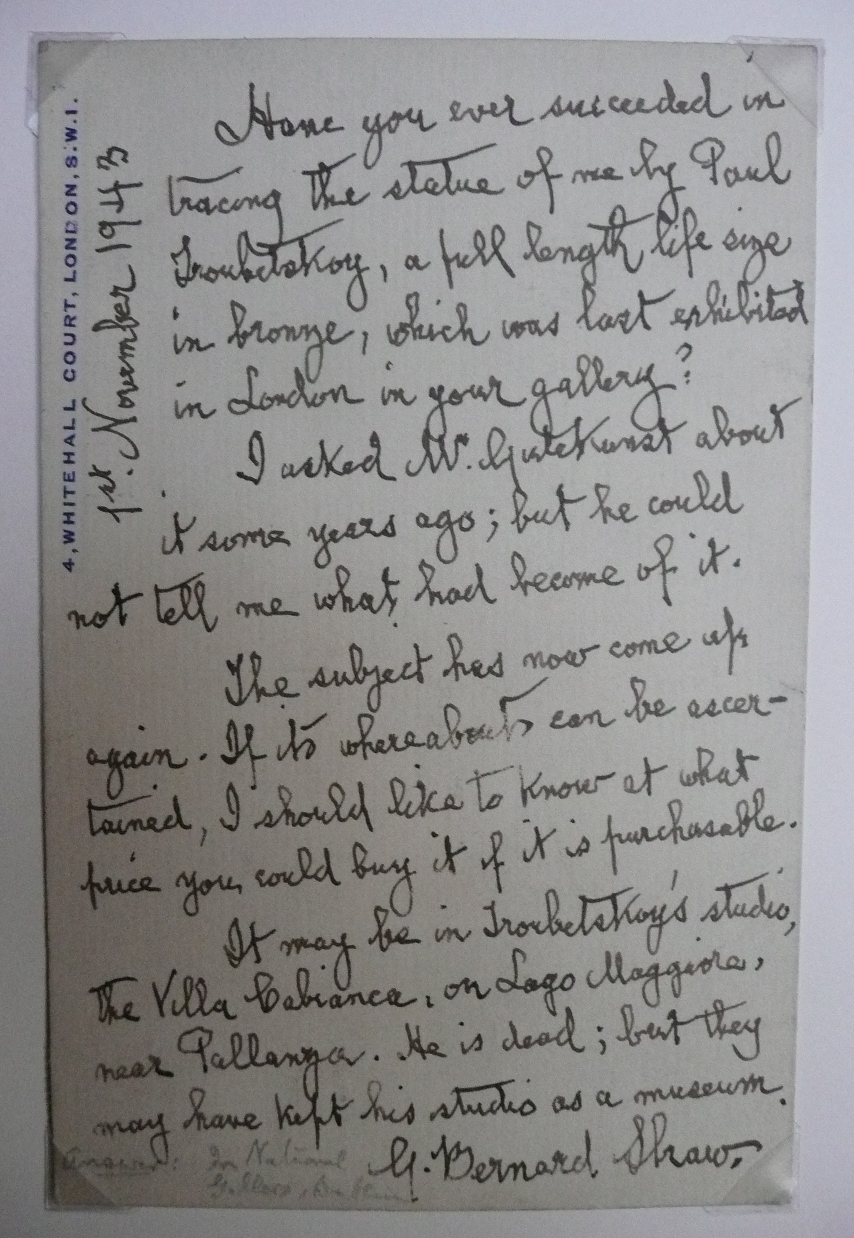 4, WHITEHALL COURT, LONDON, S.W.1.
1st. November 1943
Have you ever succeeded in
tracing the statue of me by Paul
Troubetskoy, a full length life size
in bronze, which was last exhibited
in London in your gallery?
I asked Mr. Gutekunst about
it some years ago; but he could
not tell me what had become of it.
The subject has now come up
again. If its whereabouts can be ascer-
tained, I should like to know at what
price you could buy it if it is purchasable.
It may be in Troubetskoy's studio,
the Villa Cabianca, on Lago Maggiore,
near Pallanza. He is dead; but they
may have kept his studio as a museum.
G. Bernard Shaw
Answer: In National
Gallery,